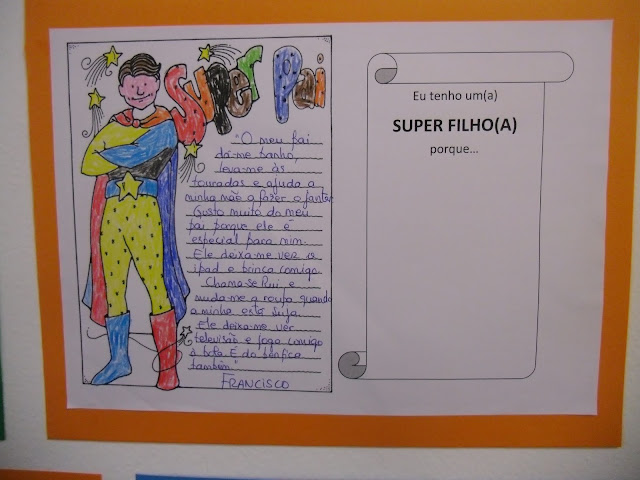 Super Pai
"O meu pai
dá-me banho,
leva-me às
touradas e ajuda a
minha mãe a fazer o jantar
Gosto muito do meu
pai porque ele é
especial para mim.
Ele deixa-me ver o
ipad e brinca comigo.
Chama-se Rui e
muda-me a roupa quando
a minha está suja.
Ele deixa-me ver
televisão e joga comigo
à bola. É do benfica
também."
FRANCISCO
Eu tenho um(a)
SUPER FILHO(A)
porque...